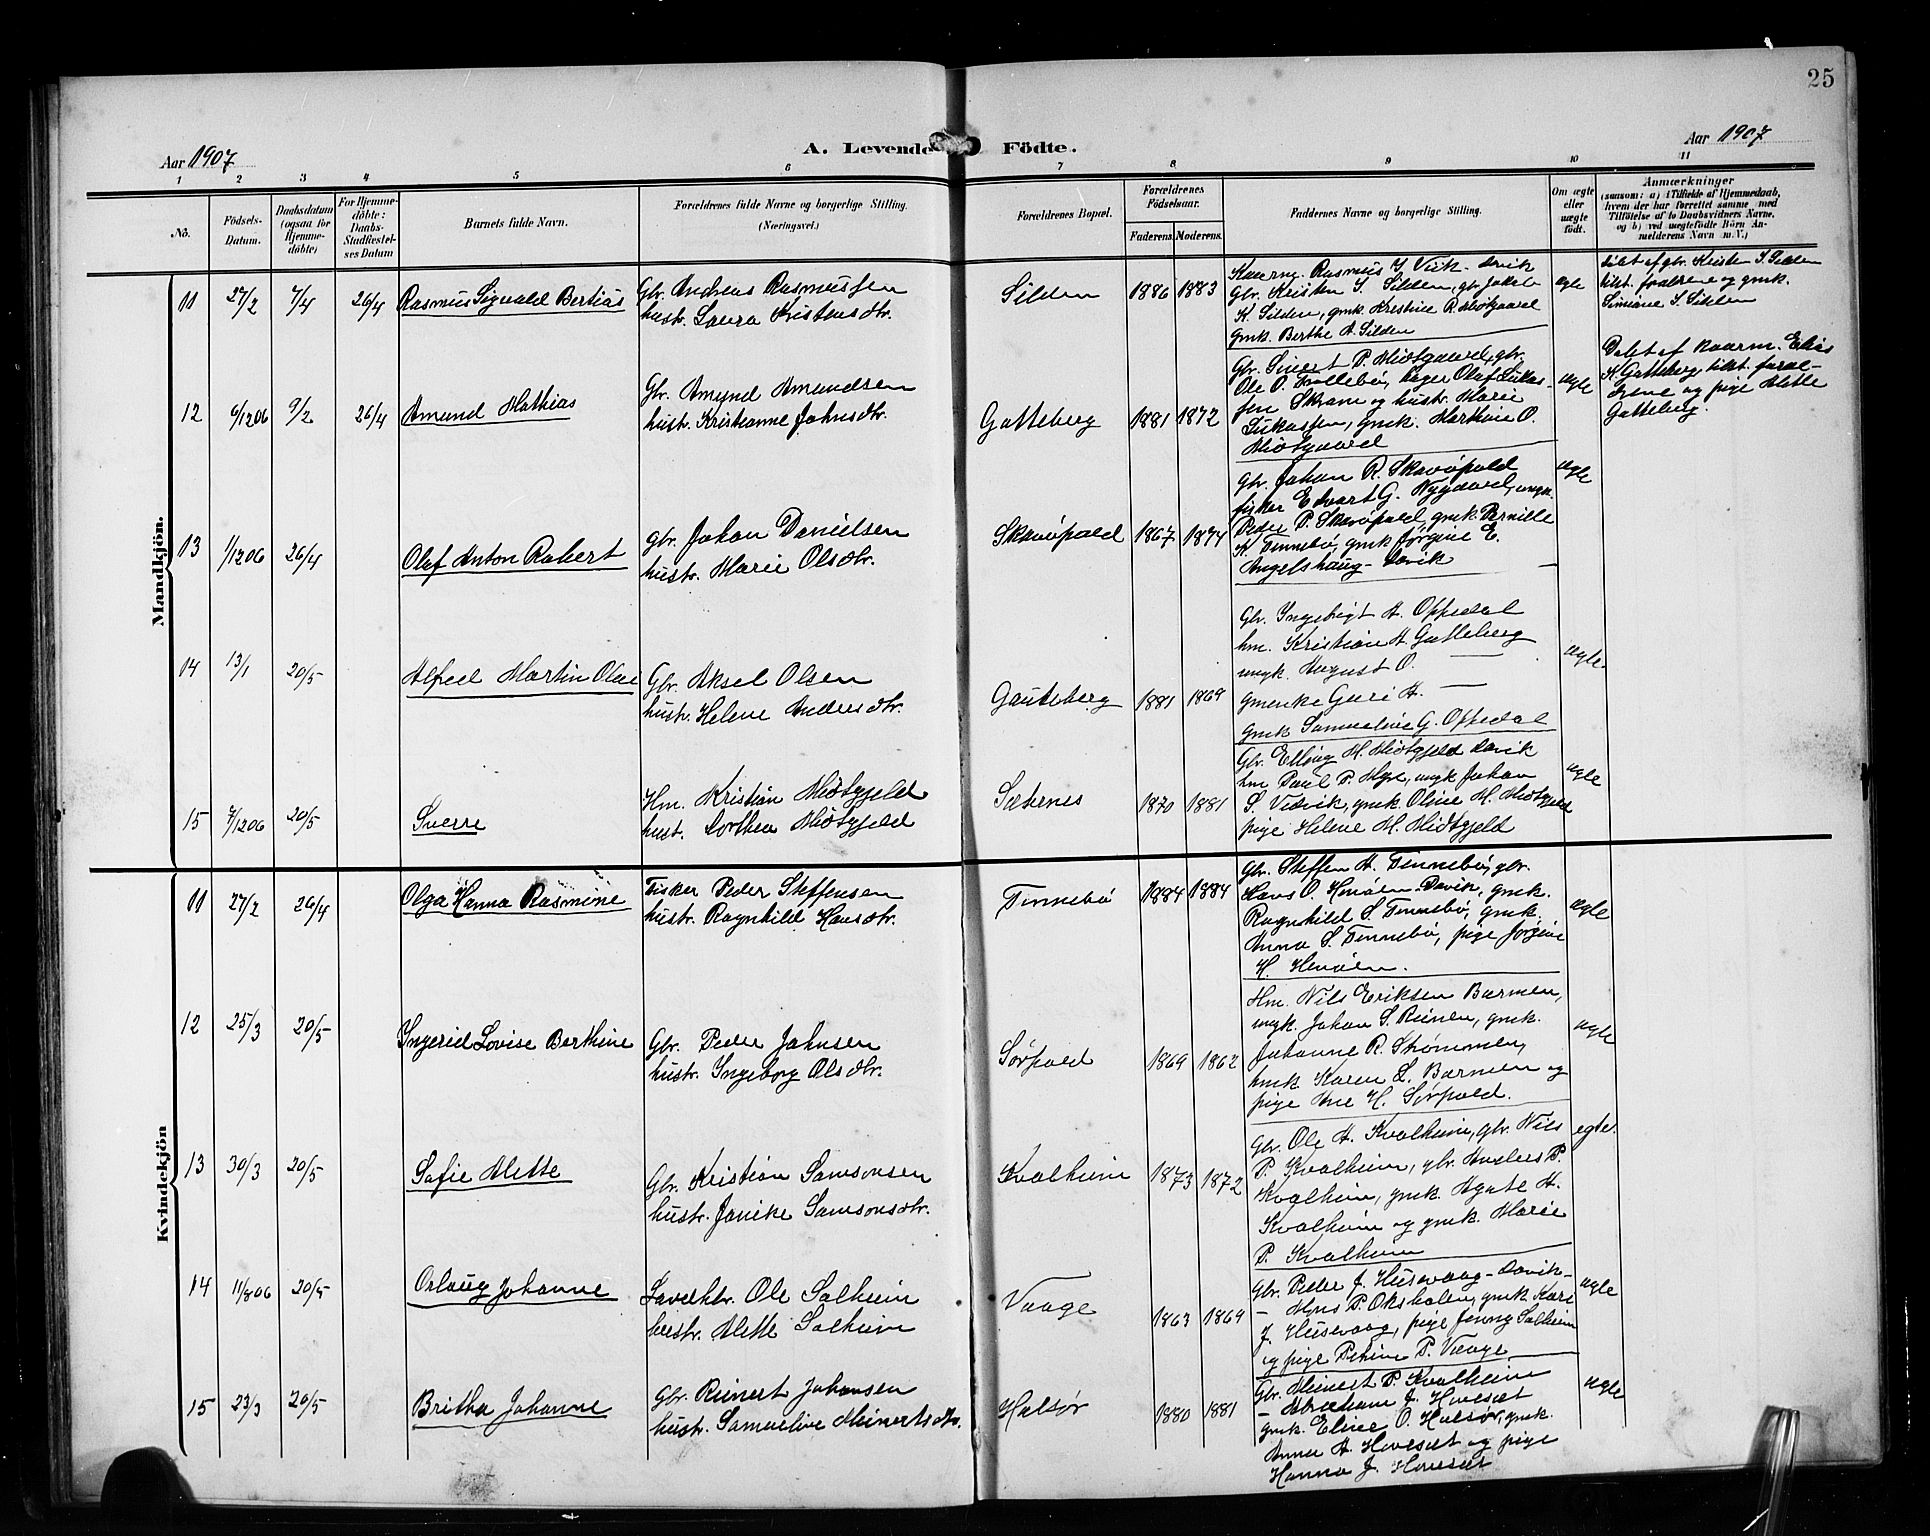 25
Aar 1907
A. Levende Födte.
Aar 1907
1 2 3 4 5 6 7 8 9 10 11
No.
Födsels-Datum.
Daabsdatum (ogsaa for Hjemme-döbte)
For Hjemme-döbte: Daabs-Stadfæstel-ses Datum
Barnets fulde Navn.
Forældrenes fulde Navne og borgerlige Stilling.
(Næringsvei.)
Forældrenes Bopæl.
Forældrenes Födselsaar.
Faderens. Moderens.
Faddernes Navne og borgerlige Stilling.
Om ægte eller uægte födt.
Anmærkninger
(saasom: a) i Tilfælde af Hjemmedaab,
hvem der har forrettet samme med
Tilföielse af to Daabsvidners Navne,
og b) ved uægtefödte Börn An-
melderens Navn m. V.)
Mandkjön.
11 27/2 7/4 26/4 Rasmus Sigvald Bertias
Gbr. Andreas Rasmussen
hustr. Laura Kristensdtr.
Silden 1886 1883
Kaarmg. Rasmus J. Vik - Davik
Gbr. Kristen S. Silden, gbr. Jakob
K. Silden, gmk. Kristine R. Midtgaard
Gmk. Berthe A. Silden
ægte
Døbt af gbr. Kristen S. Silden
tilst. forældrene og gmk.
Simione S. Silden
12 6/12 06 9/2 26/4 Amund Mathias
Gbr. Amund Amundsen
hustr. Kristianne Johnsdtr.
Gatteberg 1881 1872
Gbr. Sivert P. Midtgaard, gbr.
Ole O. Hollebø, Lager Olaf Lukas-
sen Skram og hustr. Marie
Lukassen, gmk. Marthine O.
Midtgaard
ægte
Døbt af kaarm. Elias
K. Gatteberg, tilst. foræl-
drene og pige Mette
Gatteberg.
13 1/12 06 26/4 Olaf Anton Robert
gbr. Johan Danielsen
hustr. Marie Olsdtr.
Skavøpold 1867 1874
Gbr. Johan R. Skavøpold
fisker Edvart G. Nygaard, ungk.
Peder P. Skavøpold, gmk. Pernille
K. Tennebø, gmk Jørgine E.
Angelshaug - Davik
ægte
14 13/1 20/5 Alfred Martin Olai
Gbr. Aksel Olsen
hustr. Helene Andersdtr.
Gauteberg 1881 1869
Gbr. Ingebrigt A. Oppedal
hm. Kristian A. Gatteberg
ungk. August O. —
gmenke Guri A. —
gmk Samueline G. Oppedal
ægte.
15 7/12 06 20/5 Sverre
Hm. Kristian Midtgjeld
hust. Dorthea Midtgjeld
Sætenes 1870 1881
Gbr. Elling M. Midtgjeld Davik
hm Paul P. Myre, ungk Johan
S. Vedvik, gmk Oline M. Midtgjeld
pige Helene M. Midtgjeld
ægte
Kvindekjön
11 27/2 26/4 Olga Hanna Rasmine
Fisker Peder Steffensen
hustr. Ragnhild Hansdtr.
Tennebø 1884 1884
Gbr. Steffen A. Tennebø, gbr.
Hans O. Henøen Davik, gmk.
Ragnhild S. Tennebø, gmk.
Anna S. Tennebø, pige Jørgine
H. Henøen.
ægte
12 25/3 20/5 Ingerid Lovise Berthine
Gbr. Peder Johnsen
hustr. Ingeborg Olsdtr.
Sørpold 1869 1862
Hm. Nils Eriksen Barmen,
ungk. Johan S. Reinen, gmk.
Johanne R. Strømmen,
hmk. Karen L. Barmen og
pige Ane H. Sørpold.
ægte
13 30/3 20/5 Sofie Mette
Gbr. Kristian Samsonsen
hustr. Janike Samsonsdtr.
Kvalheim 1873 1872
Gbr. Ole A. Kvalheim, gbr. Nils
P. Kvalheim, gbr. Anders P.
Kvalheim, gmk. Agate A.
Kvalheim og gmk. Marie
P. Kvalheim
egte.
14 11/8 06 20/5 Oslaug Johanne
Ole Solheim
hustr. Mette Solheim
Vaage 1863 1869
Gbr. Peder J. Husevaag - Davik -
- Mons P. Oksholen, gmk Kari
J. Husevaag, pige Jenny Solheim
og pige Petrine P. Vaage
ægte
15 23/3 20/5 Britha Johanne
Gbr. Reinert Johansen
hustr. Samueline Meinertsdtr.
Halsør 1880 1881
Gbr. Meinert P. Kvalheim
- Abraham J. Hovesæt
gmk. Eline O. Halsør, gmk.
Anna A. Hovesæt og pige
Hanna J. Hovesæt
ægte